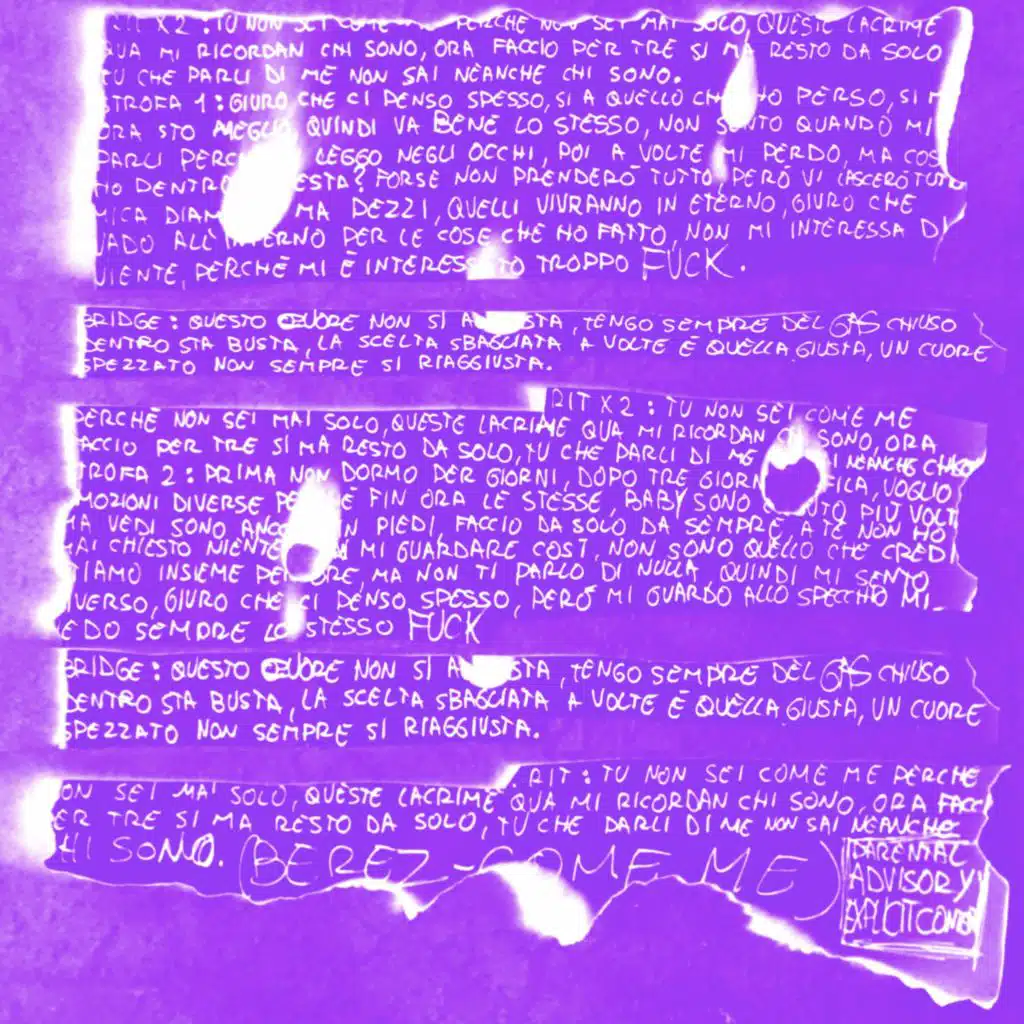 RIT X2 : TU NON SEI COME ME PERCHÈ NON SEI MAI SOLO, QUESTE LACRIME
QUA MI RICORDAN CHI SONO, ORA FACCIO PER TRE SI MA RESTO DA SOLO
TU CHE PARLI DI ME NON SAI NEANCHE CHI SONO.
STROFA 1 : GIURO CHE CI PENSO SPESSO, SI A QUELLO CHE HO PERSO, SI
ORA STO MEGLIO, QUINDI VA BENE LO STESSO, NON SENTO QUANDO MI
PARLI LEGGO NEGLI OCCHI, POI A VOLTE MI PERDO, MA COS
HO DENTRO ESTA? FORSE NON PRENDERÒ TUTTO, PERÒ VI LASCERÒ TUTT
MICA DIAM MA PEZZI, QUELLI VIVRANNO IN ETERNO, GIURO CHE
VADO ALL'INFERNO PER LE COSE CHE HO FATTO, NON MI INTERESSA DI
NIENTE, PERCHÈ MI È INTERESSATO TROPPO FUCK.
BRIDGE : QUESTO CUORE NON SI A STA, TENGO SEMPRE DEL GAS CHIUSO
DENTRO STA BUSTA, LA SCELTA SBAGLIATA A VOLTE È QUELLA GIUSTA, UN CUORE
SPEZZATO NON SEMPRE SI RIAGGIUSTA.
RIT X2 : TU NON SEI COME ME
PERCHÈ NON SEI MAI SOLO, QUESTE LACRIME QUA MI RICORDAN CHI SONO, ORA
FACCIO PER TRE SI MA RESTO DA SOLO, TU CHE PARLI DI ME I NEANCHE CHI SONO
STROFA 2 : PRIMA NON DORMO PER GIORNI, DOPO TRE GIORN FICA, VOGLIO
EMOZIONI DIVERSE, PE È FIN ORA LE STESSE, BABY SONO UTO PIÙ VOLT
MA VEDI SONO ANCO N PIEDI, FACCIO DA SOLO DA SEMPRE, A TE NON HO
MAI CHIESTO NIENTE N MI GUARDARE COSÌ, NON SONO QUELLO CHE CREDI
STIAMO INSIEME PER ORE, MA NON TI PARLO DI NULLA, QUINDI MI SENTO
DIVERSO, GIURO CHE CI PENSO SPESSO, PERÒ MI GUARDO ALLO SPECCHIO MI
VEDO SEMPRE LO STESSO FUCK
BRIDGE : QUESTO CUORE NON SI A STA, TENGO SEMPRE DEL GAS CHIUSO
DENTRO STA BUSTA, LA SCELTA SBAGLIATA A VOLTE È QUELLA GIUSTA, UN CUORE
SPEZZATO NON SEMPRE SI RIAGGIUSTA.
RIT : TU NON SEI COME ME PERCHÈ
NON SEI MAI SOLO, QUESTE LACRIME QUA MI RICORDAN CHI SONO, ORA FACCI
PER TRE SI MA RESTO DA SOLO, TU CHE PARLI DI ME NON SAI NEANCHE
CHI SONO. (BEREZ-COME ME)
PARENTAL
ADVISORY
EXPLICIT CONTENT